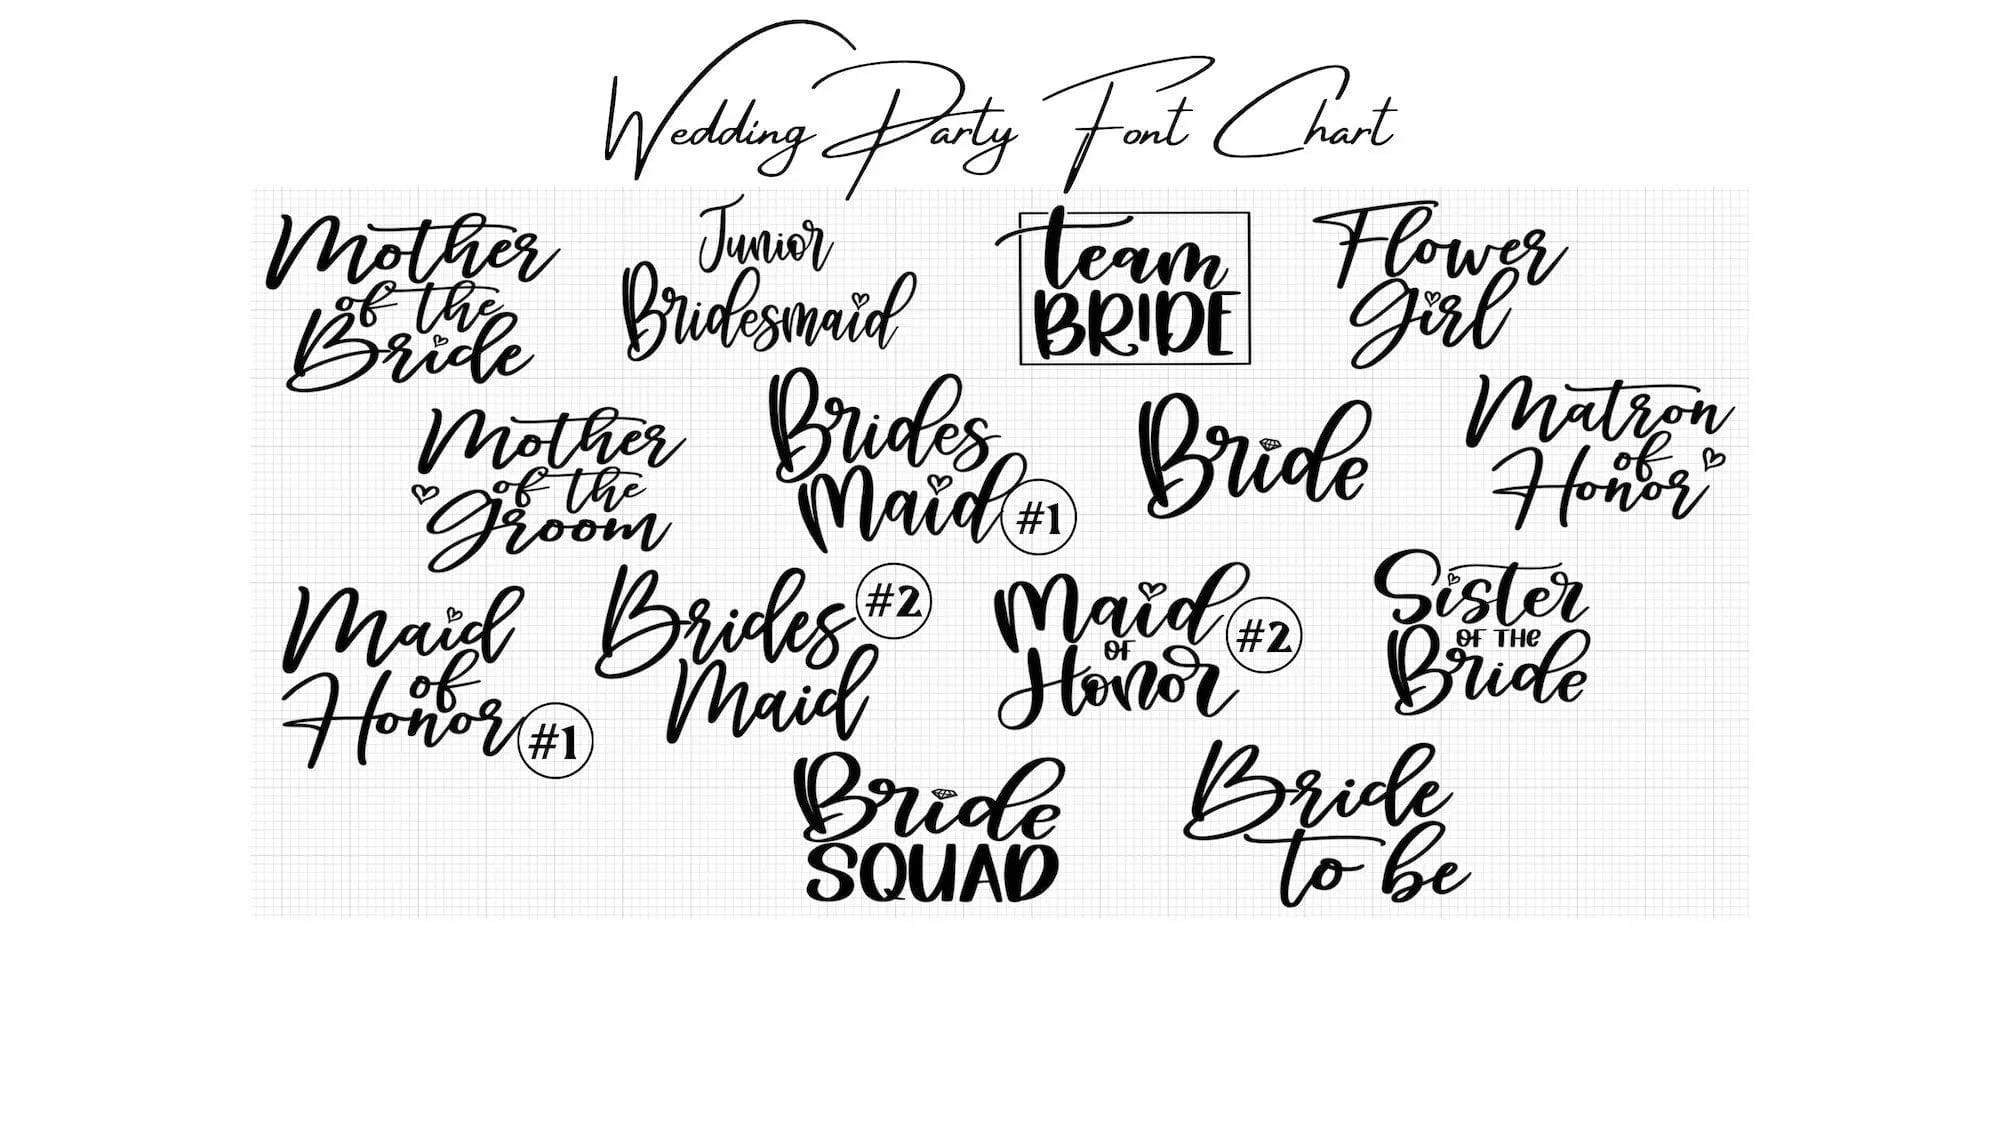 Wedding Party Font Chart
Mother
of the
Bride
Junior
Bridesmaid
team
BRIDE
Flower
Girl
Mother
of the
Groom
Brides
Maid
#1
Bride
Matron
of
Honor
Maid
of
Honor
#1
Brides
Maid
#2
Maid
OF
Honor
#2
Sister
OF THe
Bride
Bride
SQUAD
Bride
to be